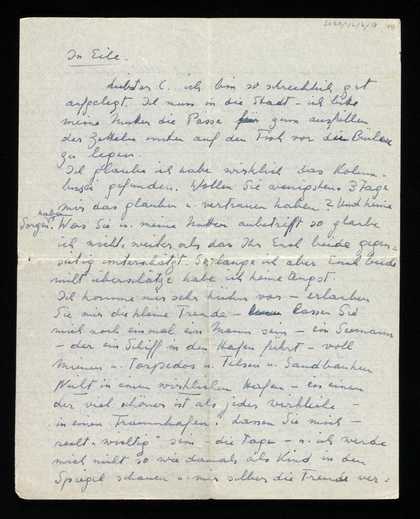 In Eile.
Liebster C. ich bin so schrecklich gut
aufgelegt. Ich muss in die Stadt - ich bitte
meine Mutter die Pässe zum ausfüllen
der Zetteln unten auf den Tisch vor die
zu legen.
Ich glaube ich habe wirklich "das Kolum-
busei" gefunden. Wollen Sie wenigstens 3 Tage
mir das glauben u. vertrauen haben? Und keine
haben
Sorgen. Was Sie u. meine Mutter anbetrifft so glaube
ich nicht weiter als das Ihr Euch beide gegen-
seitig unterschätzt. Solange ich aber Euch beide
nicht überschätze habe ich keine Angst.
Ich komme mir sehr vor - erlauben
Sie mir die kleine Freude - lassen Sie
mich noch einmal ein Mann sein - ein Seemann
- der ein Schiff in den Hafen führt - voll
Minen u. Torpedos u. Felsen u. Sandbanken
Nicht in einen wirklichen Hafen - in einen
der viel schöner ist als jeder wirkliche -
in einen Traumhafen. Lassen Sie mich -
recht "wichtig" sein - die Tage - u. ich werde
mich nicht so wie damals als Kind in den
Spiegel schauen u. mir selber die Freude ver-